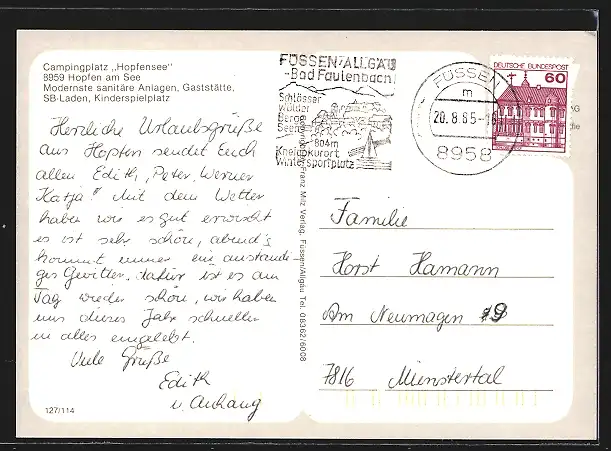 Campingplatz „Hopfensee"
8959 Hopfen am See
Modernste sanitäre Anlagen, Gaststätte,
SB-Laden, Kinderspielplatz
Herzliche Urlaubsgrüße
aus Hopfen sendet Euch
allen Edith, Peter, Werner
Katja! Mit dem Wetter
haben wir es gut erwischt
es ist sehr schön, abend's
kommt immer ein anständi-
ges Gewitter, dafür ist es am
Tag wieder schön, wir haben
uns dieses Jahr schneller
in alles eingelebt.
Viele Grüße
Edith
u. Anhang
127/114
Franz Milz Verlag, Füssen/Allgäu Tel. 08362/6008
FÜSSEN/ALLGÄU
-Bad Faulenbach
Schlösser
Wälder
Berge
Seen
-804m
Kneippkurort
Wintersportplatz
FÜSSEN
m
20.8.85-
8958
DEUTSCHE BUNDESPOST
60
Familie
Horst Hamann
Am Neumagen 9
7816 Münstertal